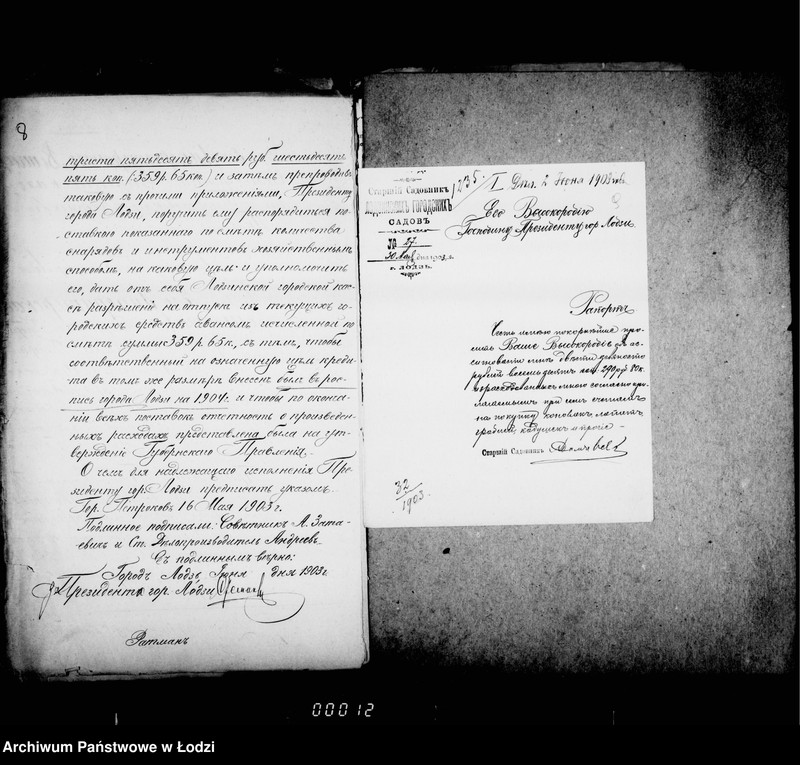 8
триста пятьдесятъ девять руб. шестьдесятъ
пять коп. (359 р. 65 коп.) и затѣмъ препроводивъ
таковую съ прочими приложеніями, Президенту
города Лодзи, поручить ему распорядиться по-
ставкою показаннаго по смѣтѣ количества
снарядовъ и инструментовъ хозяйственнымъ
способомъ, на каковую цѣль и уполномочить
его, дать отъ себя Лодзинской городской кас-
сѣ разрѣшеніе на отпускъ изъ текущихъ го-
родскихъ средствъ авансомъ исчисленной по
смѣтѣ суммы 359 р. 65 к., съ тѣмъ, чтобы
соотвѣтственный на означенную цѣль креди-
тъ въ томъ же размѣрѣ внесенъ былъ въ рос-
пись города Лодзи на 1904 г. и чтобы по оконча-
ніи всѣхъ поставокъ отчетность о произведен-
ныхъ расходахъ представлена была на ут-
вержденіе Губернскаго Правленія.
О чемъ для надлежащаго исполненія Пре-
зиденту гор. Лодзи предписать указомъ.
Гор. Петроковъ 16 Мая 1903 г.
Подлинное подписали: Совѣтникъ А. Зата-
евичъ и Ст. Дѣлопроизводитель Андреевъ
Съ подлиннымъ вѣрно:
Городъ Лодзь, Іюня дня 1903 г.
Президентъ гор. Лодзи
Ратманъ
Старшій Садовникъ
ЛОДЗИНСКИХЪ ГОРОДСКИХЪ
САДОВЪ
№ 27
30 Мая дня 190 3 г.
г. ЛОДЗЬ.
1235. I Дпл. 2 Іюня 1903
Его Высокородію
Господину Президенту гор. Лодзи
Рапортъ
Честь имѣю покорнѣйше про-
сить Ваше Высокородіе объ ас-
сигнованіи мнѣ двѣсти девяносто
рублей восемьдесятъ коп. 290 руб. 80 к.
израсходованныхъ мною согласно при-
лагаемымъ при семъ счетамъ
на покупку коновокъ, лопатъ
граблей, кадушекъ и прочіе -
Старшій Садовникъ
32
1903.
00012
Archiwum Państwowe w Łodzi